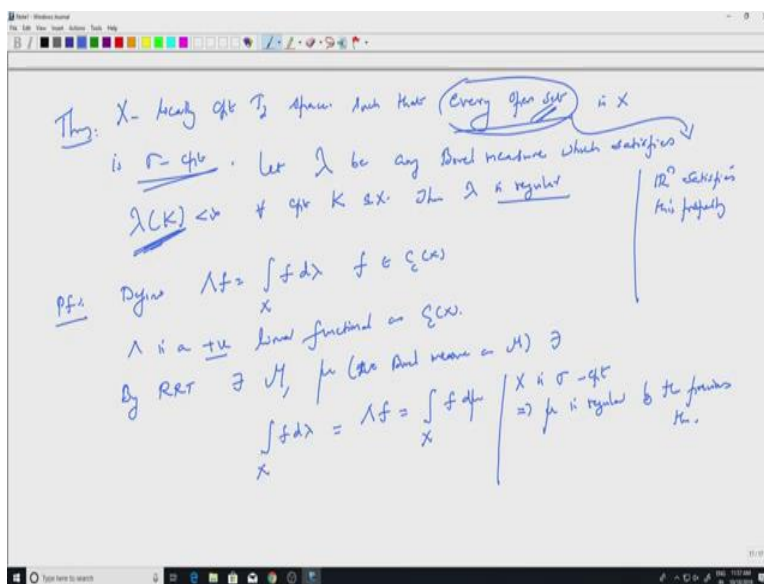 Note1 - Windows Journal
File Edit View Insert Actions Tools Help
Thm: X - locally cpt T2 space. Such that every open set in X
is σ-cpt. Let λ be any Borel measure which satisfies
λ(K) < ∞ ∀ cpt K ⊆ X. Then λ is regular
ℝⁿ satisfies
this property
Pf: Define Λf = ∫_X f dλ f ∈ C_c(X)
Λ is a +ve linear functional on C_c(X).
By RRT ∃ M, μ (+ve Borel measure on M) ∋
∫_X f dλ = Λf = ∫_X f dμ
X is σ-cpt
⇒ μ is regular by the previous
thm.
17/17
Type here to search
ENG 11:57 AM